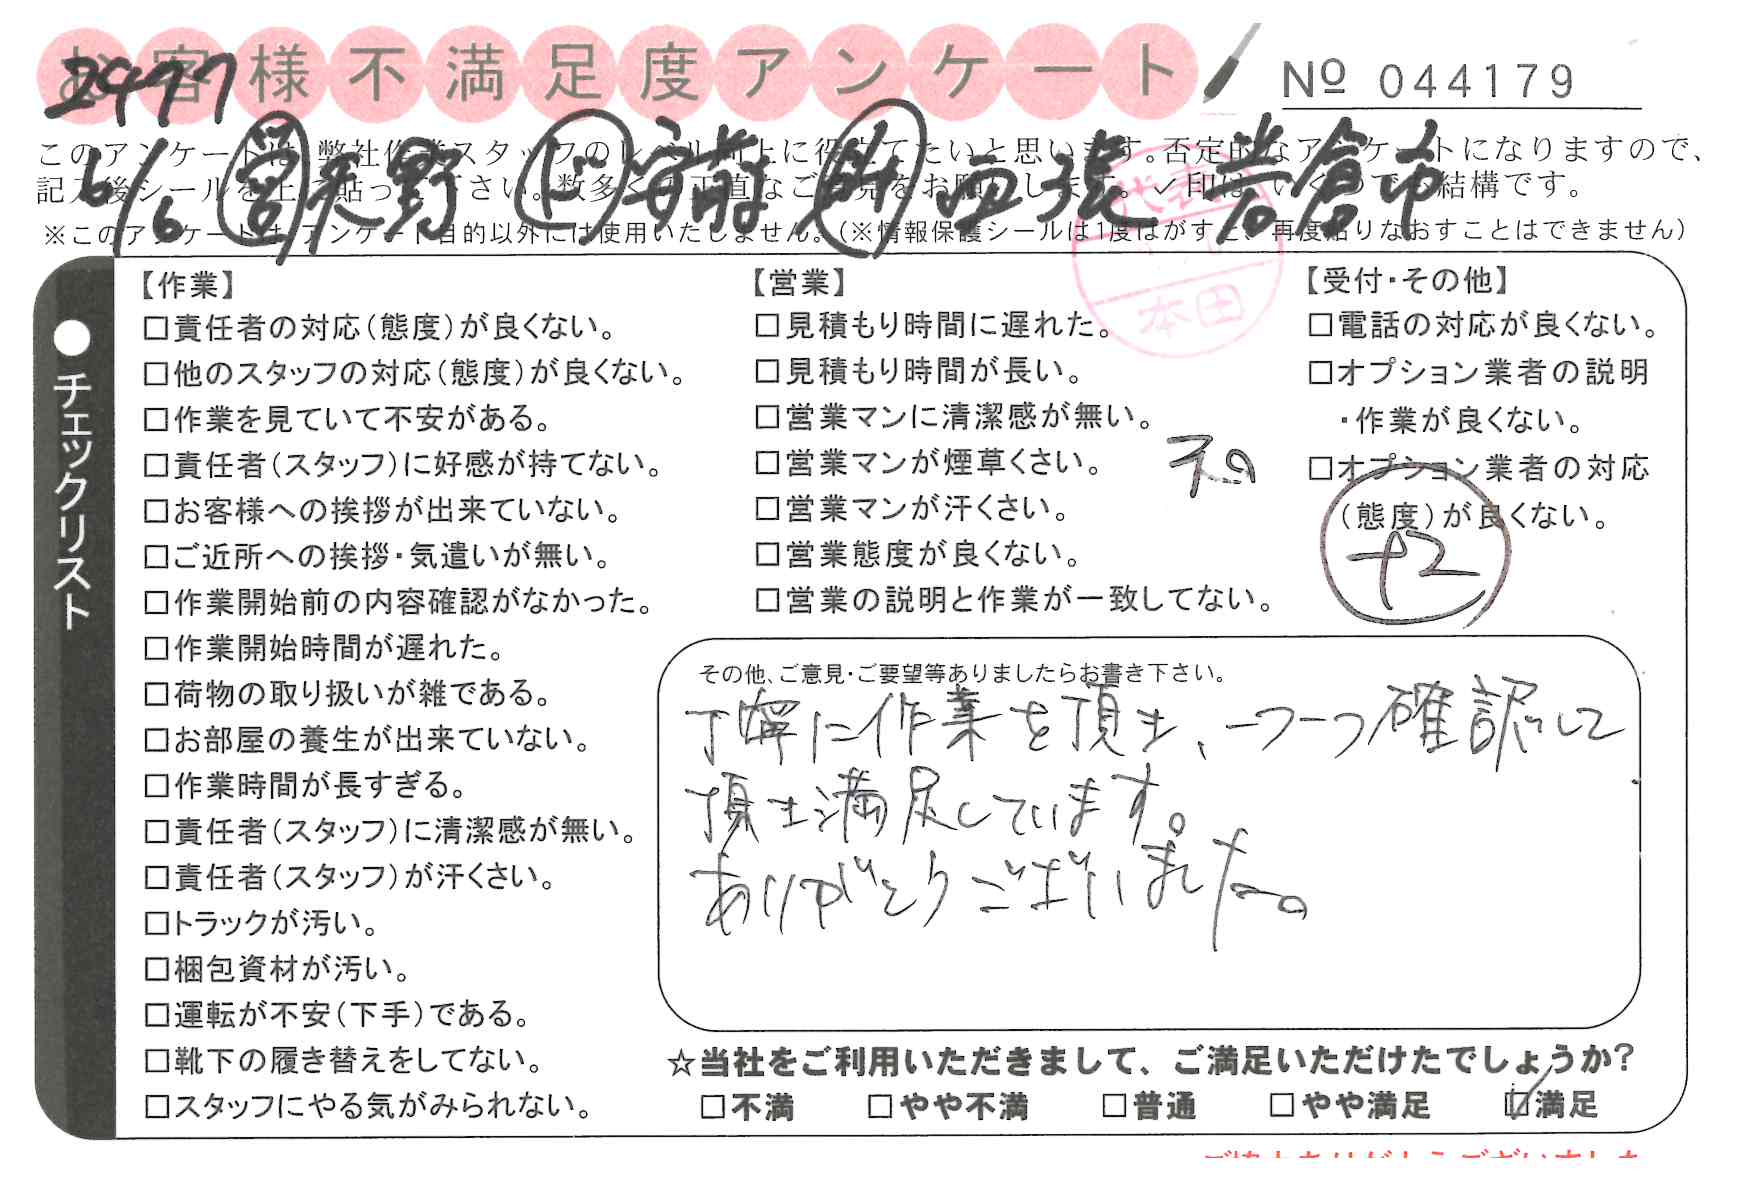 お客様不満足度アンケート
№ 044179
2477
6/6 営 天野 ド 安藤 助 西張 岩倉市
このアンケートは、弊社作業スタッフのレベル向上に役立てたいと思います。否定的なアンケートになりますので、
記入後シールを上に貼って下さい。数多くの正直なご意見をお願いします。✓印はいくつでも結構です。
※このアンケートはアンケート目的以外には使用いたしません。(※情報保護シールは1度はがすと、再度貼りなおすことはできません)
代表
本田
●チェックリスト
【作業】
□責任者の対応(態度)が良くない。
□他のスタッフの対応(態度)が良くない。
□作業を見ていて不安がある。
□責任者(スタッフ)に好感が持てない。
□お客様への挨拶が出来ていない。
□ご近所への挨拶・気遣いが無い。
□作業開始前の内容確認がなかった。
□作業開始時間が遅れた。
□荷物の取り扱いが雑である。
□お部屋の養生が出来ていない。
□作業時間が長すぎる。
□責任者(スタッフ)に清潔感が無い。
□責任者(スタッフ)が汗くさい。
□トラックが汚い。
□梱包資材が汚い。
□運転が不安(下手)である。
□靴下の履き替えをしてない。
□スタッフにやる気がみられない。
【営業】
□見積もり時間に遅れた。
□見積もり時間が長い。
□営業マンに清潔感が無い。
□営業マンが煙草くさい。
□営業マンが汗くさい。
□営業態度が良くない。
□営業の説明と作業が一致してない。
【受付・その他】
□電話の対応が良くない。
□オプション業者の説明
・作業が良くない。
□オプション業者の対応
(態度)が良くない。
+2
その他、ご意見・ご要望等ありましたらお書き下さい。
丁寧に作業を頂き、一つ一つ確認して
頂き満足しています。
ありがとうございました。
☆当社をご利用いただきまして、ご満足いただけたでしょうか?
□不満 □やや不満 □普通 □やや満足 ☑満足
ご協力ありがとうございました